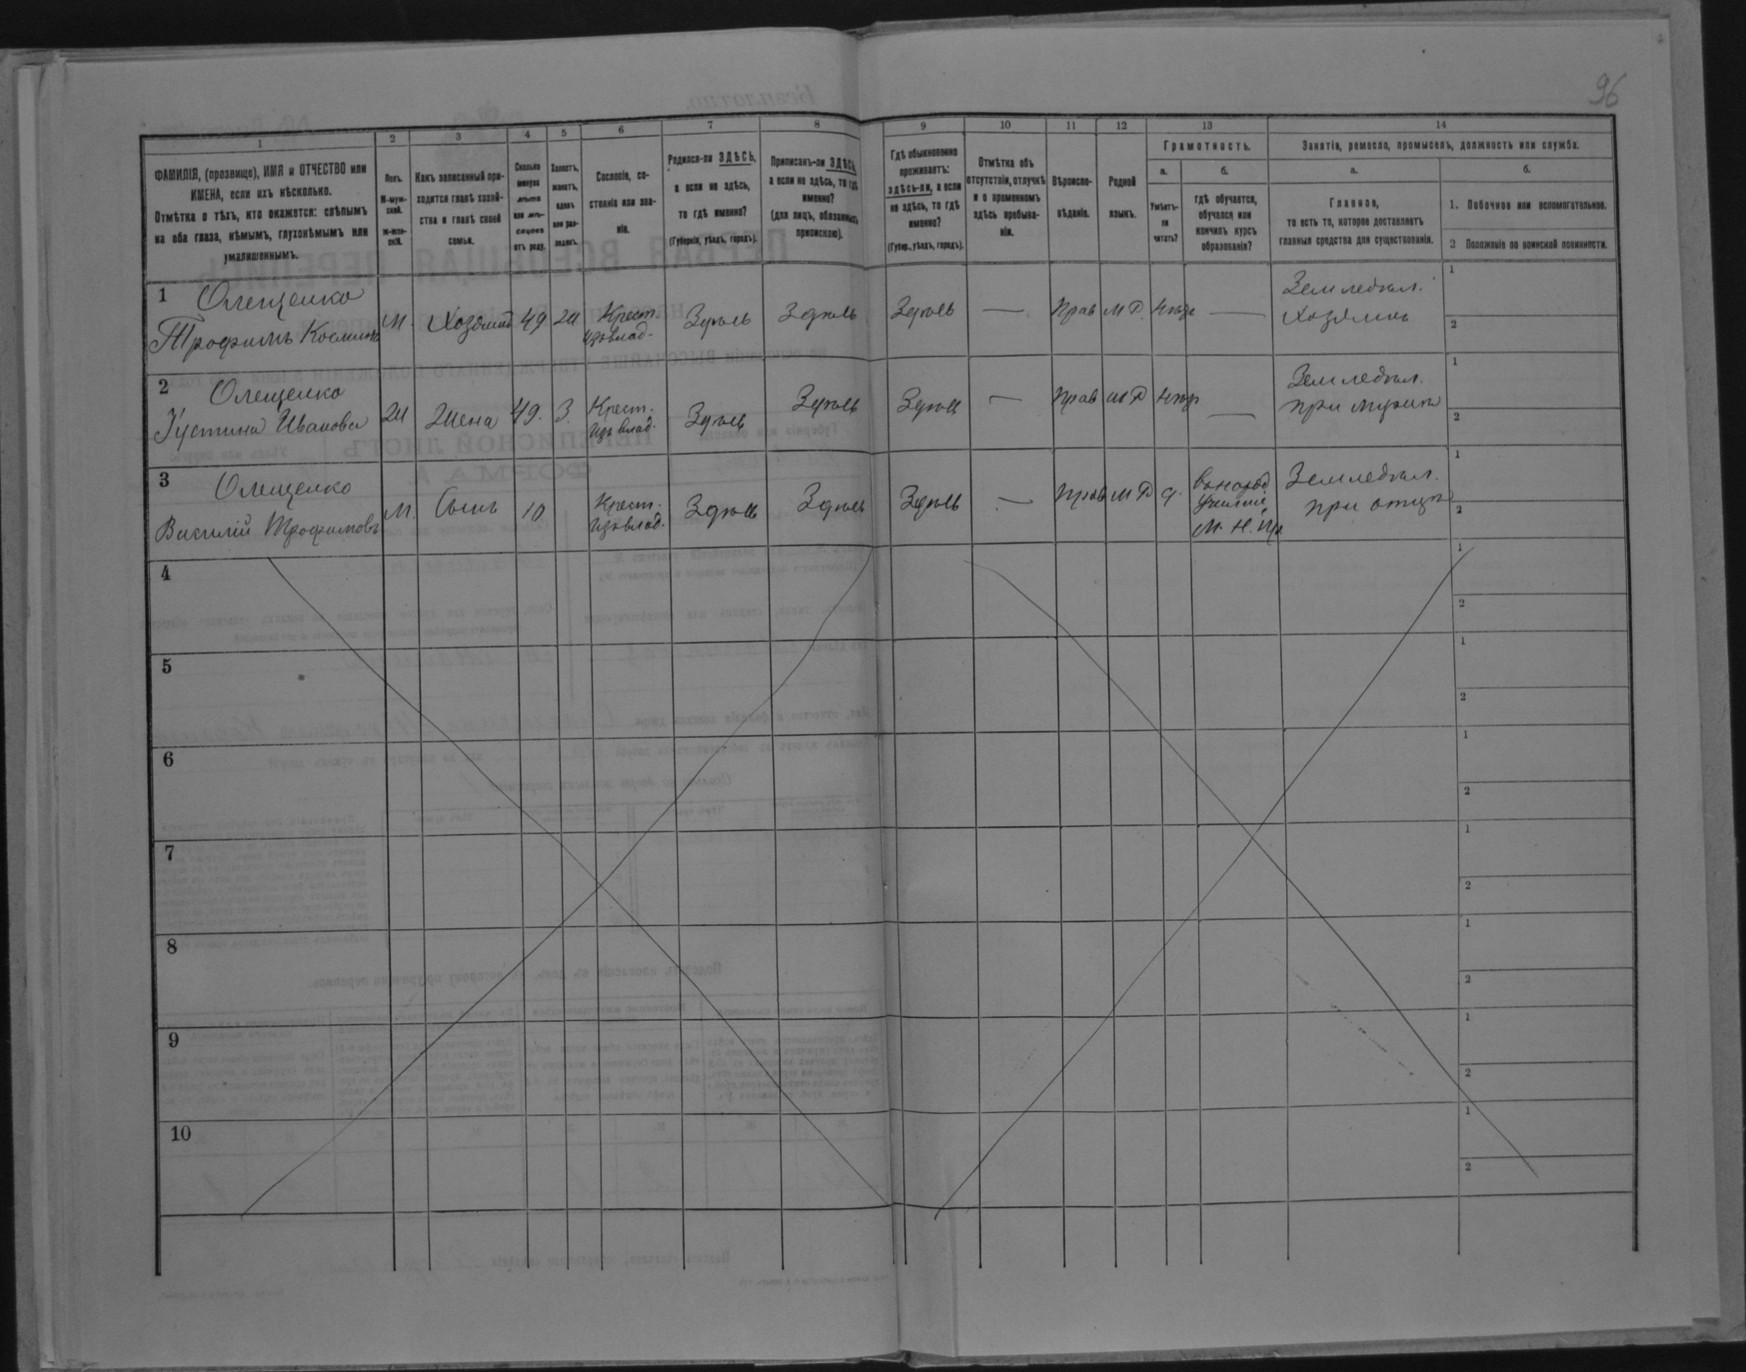 96
1 2 3 4 5 6 7 8 9 10 11 12 13 14
ФАМИЛІЯ, (прозвище), ИМЯ и ОТЧЕСТВО или
ИМЕНА, если ихъ нѣсколько.
Отмѣтка о тѣхъ, кто окажется: слѣпымъ
на оба глаза, нѣмымъ, глухонѣмымъ или
умалишеннымъ.
Полъ.
М-муж-
ской.
Ж-жен-
скій.
Какъ записанный при-
ходится главѣ хозяй-
ства и главѣ своей
семьи.
Сколько
минуло
лѣтъ
или мѣ-
сяцевъ
отъ роду.
Холостъ,
женатъ,
вдовъ
или раз-
веденъ.
Сословіе, со-
стояніе или зва-
ніе.
Родился-ли ЗДѢСЬ,
а если не здѣсь,
то гдѣ именно?
(Губернія, уѣздъ, городъ).
Приписанъ-ли ЗДѢСЬ,
а если не здѣсь, то гдѣ
именно?
(для лицъ, обязанныхъ
припискою).
Гдѣ обыкновенно
проживаетъ:
здѣсь-ли, а если
не здѣсь, то гдѣ
именно?
(Губер., уѣздъ, городъ).
Отмѣтка объ
отсутствіи, отлучкѣ
и о временномъ
здѣсь пребыва-
ніи.
Вѣроиспо-
вѣданіе.
Родной
языкъ.
Грамотность.
а.
Умѣетъ-
ли
читать?
б.
гдѣ обучается,
обучался или
кончилъ курсъ
образованія?
Занятія, ремесло, промыселъ, должность или служба.
а.
Главное,
то есть то, которое доставляетъ
главныя средства для существованія.
б.
1. Побочное или вспомогательное.
2 Положеніе по воинской повинности.
1 Олещенко
Трофимъ Космичъ М. Хозяинъ 49 Ж Крест. Здѣсь Здѣсь Здѣсь — Прав М Р. нѣтъ — Земледѣл. 1
изъ влад. Хозяинъ 2
2 Олещенко
Устина Иванова Ж Жена 49. З. Крест. Здѣсь Здѣсь Здѣсь — Прав М Р нѣтъ — Земледѣл. 1
изъ влад. при мужѣ 2
3 Олещенко
Василій Трофимовъ М. Сынъ 10 Крест. Здѣсь Здѣсь Здѣсь — Прав М Р д. Земледѣл. 1
изъ влад. М. Н. Пр. при отцѣ 2
4 1
2
5 1
2
6 1
2
7 1
2
8 1
2
9 1
2
10 1
2